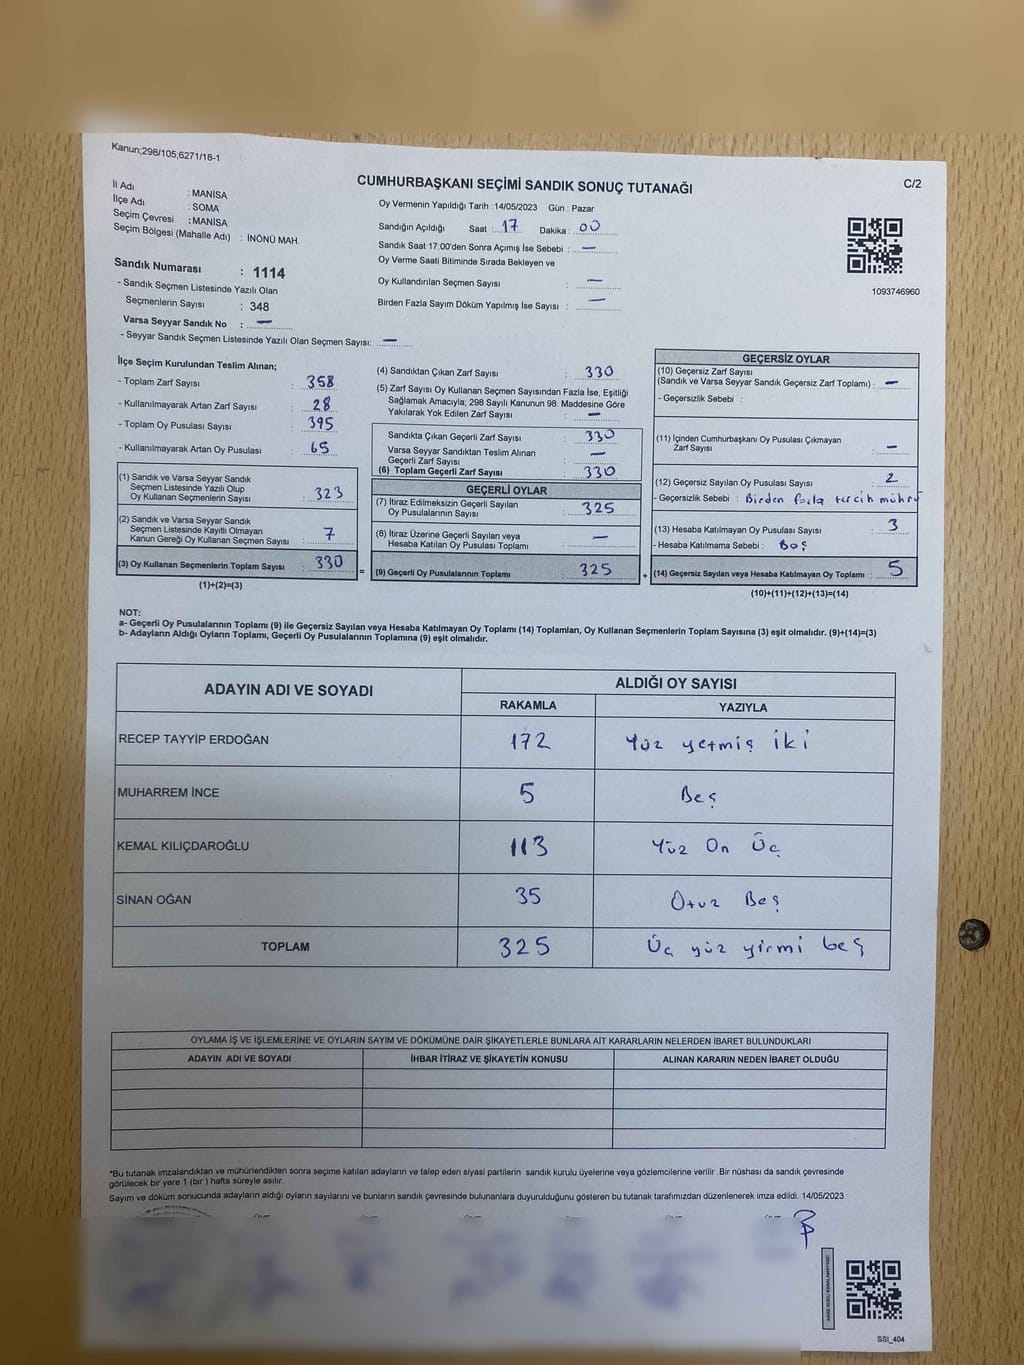 Kanun;298/105;6271/18-1
CUMHURBAŞKANI SEÇİMİ SANDIK SONUÇ TUTANAĞI
C/2
İl Adı : MANİSA
İlçe Adı : SOMA
Seçim Çevresi : MANİSA
Seçim Bölgesi (Mahalle Adı) : İNÖNÜ MAH.
Sandık Numarası : 1114
- Sandık Seçmen Listesinde Yazılı Olan
Seçmenlerin Sayısı : 348
Varsa Seyyar Sandık No : —
- Seyyar Sandık Seçmen Listesinde Yazılı Olan Seçmen Sayısı: —
Oy Vermenin Yapıldığı Tarih :14/05/2023 Gün : Pazar
Sandığın Açıldığı Saat : 17 Dakika : 00
Sandık Saat 17:00'den Sonra Açımış İse Sebebi : —
Oy Verme Saati Bitiminde Sırada Bekleyen ve
Oy Kullandırılan Seçmen Sayısı : —
Birden Fazla Sayım Döküm Yapılmış İse Sayısı : —
1093746960
İlçe Seçim Kurulundan Teslim Alınan;
- Toplam Zarf Sayısı : 358
- Kullanılmayarak Artan Zarf Sayısı : 28
- Toplam Oy Pusulası Sayısı : 395
- Kullanılmayarak Artan Oy Pusulası : 65
(1) Sandık ve Varsa Seyyar Sandık
Seçmen Listesinde Yazılı Olup
Oy Kullanan Seçmenlerin Sayısı : 323
(2) Sandık ve Varsa Seyyar Sandık
Seçmen Listesinde Kayıtlı Olmayan
Kanun Gereği Oy Kullanan Seçmen Sayısı : 7
(3) Oy Kullanan Seçmenlerin Toplam Sayısı : 330
(1)+(2)=(3)
(4) Sandıktan Çıkan Zarf Sayısı : 330
(5) Zarf Sayısı Oy Kullanan Seçmen Sayısından Fazla İse, Eşitliği
Sağlamak Amacıyla; 298 Sayılı Kanunun 98. Maddesine Göre
Yakılarak Yok Edilen Zarf Sayısı : —
Sandıkta Çıkan Geçerli Zarf Sayısı : 330
Varsa Seyyar Sandıktan Teslim Alınan
Geçerli Zarf Sayısı : —
(6) Toplam Geçerli Zarf Sayısı : 330
GEÇERLİ OYLAR
(7) İtiraz Edilmeksizin Geçerli Sayılan
Oy Pusulalarının Sayısı : 325
(8) İtiraz Üzerine Geçerli Sayılan veya
Hesaba Katılan Oy Pusulası Toplamı : —
= (9) Geçerli Oy Pusulalarının Toplamı : 325
GEÇERSİZ OYLAR
(10) Geçersiz Zarf Sayısı
(Sandık ve Varsa Seyyar Sandık Geçersiz Zarf Toplamı) : —
- Geçersizlik Sebebi :
(11) İçinden Cumhurbaşkanı Oy Pusulası Çıkmayan
Zarf Sayısı : —
(12) Geçersiz Sayılan Oy Pusulası Sayısı : 2
- Geçersizlik Sebebi : Birden fazla tercih mührü
(13) Hesaba Katılmayan Oy Pusulası Sayısı : 3
- Hesaba Katılmama Sebebi : Boş
+ (14) Geçersiz Sayılan veya Hesaba Katılmayan Oy Toplamı : 5
(10)+(11)+(12)+(13)=(14)
NOT:
a- Geçerli Oy Pusulalarının Toplamı (9) ile Geçersiz Sayılan veya Hesaba Katılmayan Oy Toplamı (14) Toplamları, Oy Kullanan Seçmenlerin Toplam Sayısına (3) eşit olmalıdır. (9)+(14)=(3)
b- Adayların Aldığı Oyların Toplamı, Geçerli Oy Pusulalarının Toplamına (9) eşit olmalıdır.
ADAYIN ADI VE SOYADI ALDIĞI OY SAYISI
RAKAMLA YAZIYLA
RECEP TAYYİP ERDOĞAN 172 Yüz yetmiş iki
MUHARREM İNCE 5 Beş
KEMAL KILIÇDAROĞLU 113 Yüz On Üç
SİNAN OĞAN 35 Otuz Beş
TOPLAM 325 Üç yüz yirmi beş
OYLAMA İŞ VE İŞLEMLERİNE VE OYLARIN SAYIM VE DÖKÜMÜNE DAİR ŞİKAYETLERLE BUNLARA AİT KARARLARIN NELERDEN İBARET BULUNDUKLARI
ADAYIN ADI VE SOYADI İHBAR İTİRAZ VE ŞİKAYETİN KONUSU ALINAN KARARIN NEDEN İBARET OLDUĞU
*Bu tutanak imzalandıktan ve mühürlendikten sonra seçime katılan adayların ve talep eden siyasi partilerin sandık kurulu üyelerine veya gözlemcilerine verilir .Bir nüshası da sandık çevresinde
görülecek bir yere 1 (bir ) hafta süreyle asılır.
Sayım ve döküm sonucunda adayların aldığı oyların sayılarını ve bunların sandık çevresinde bulunanlara duyurulduğunu gösteren bu tutanak tarafımızdan düzenlenerek imza edildi. 14/05/2023
SSİ_404